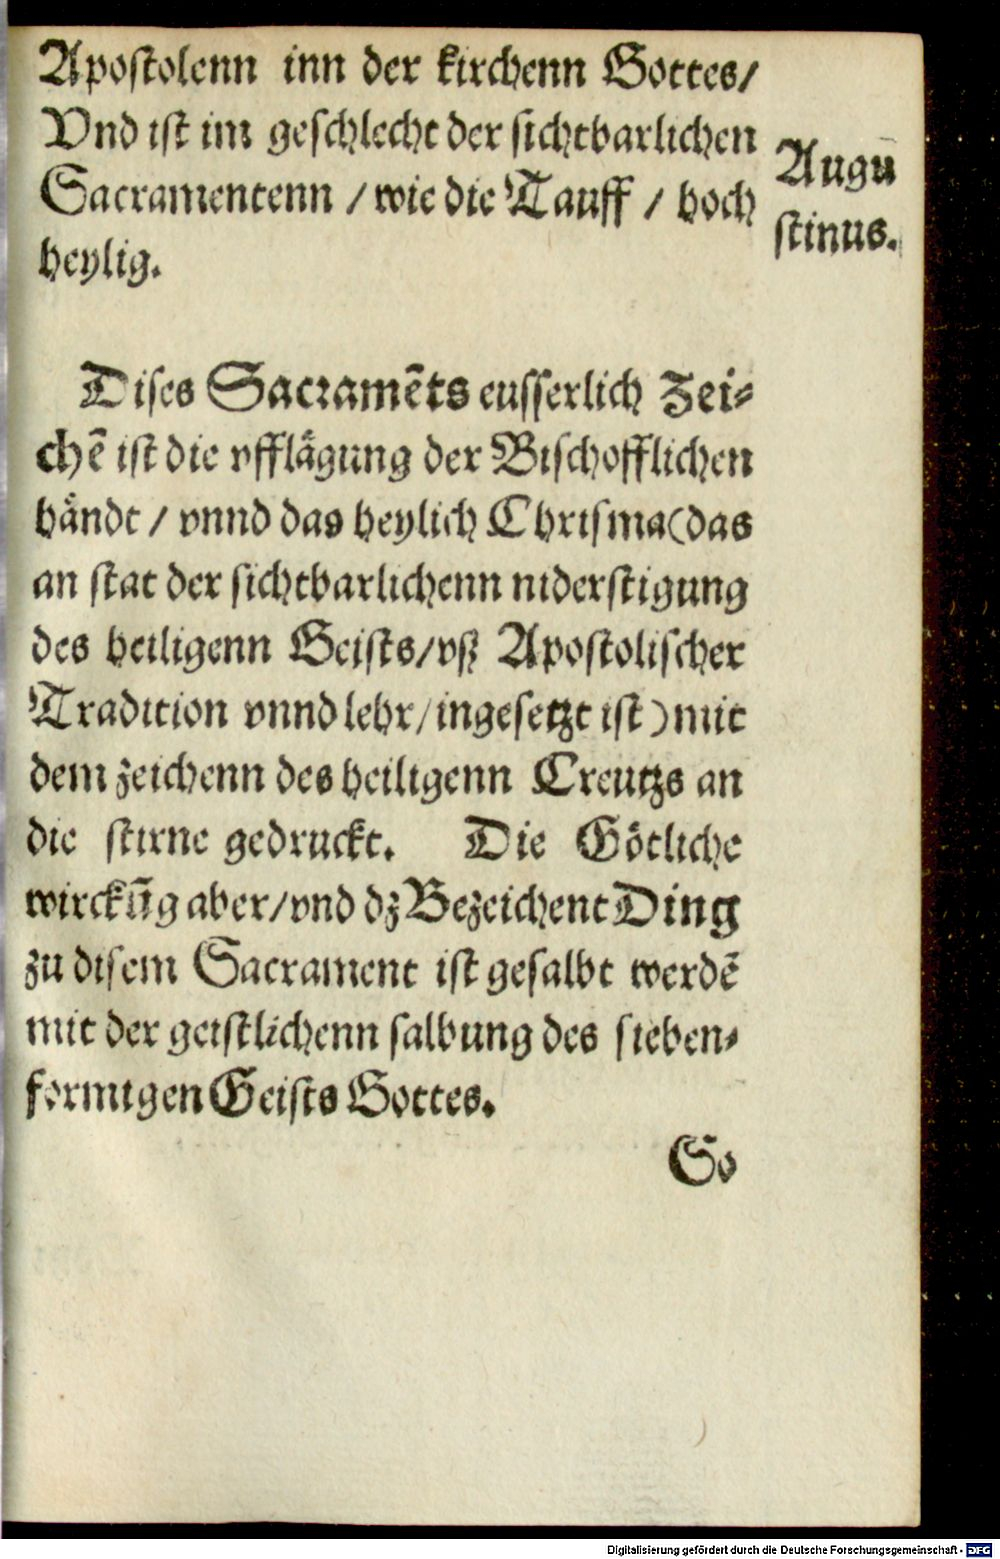 Apostolenn inn der kirchenn Gottes/
Vnd ist im geschlecht der sichtbarlichen
Sacramentenn / wie die Tauff / hoch
heylig.
Augu
stinus.
Dises Sacramẽts eusserlich Zei-
chẽ ist die vfflågung der Bischofflichen
håndt / vnnd das heylich Chrisma (das
an stat der sichtbarlichenn niderstigung
des heiligenn Geists/vß Apostolischer
Tradition vnnd lehr/ingesetzt ist) mit
dem zeichenn des heiligenn Creutzs an
die stirne gedruckt. Die Götliche
wirckũg aber/vnd dz Bezeichent Ding
zu disem Sacrament ist gesalbt werdẽ
mit der geistlichenn salbung des sieben-
formigen Geists Gottes.
So
Digitalisierung gefördert durch die Deutsche Forschungsgemeinschaft - DFG